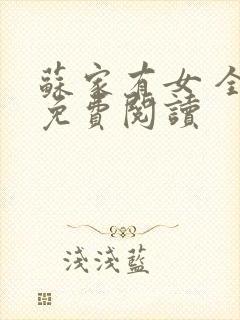 蘇家有女 全
免費閱讀
淺淺藍